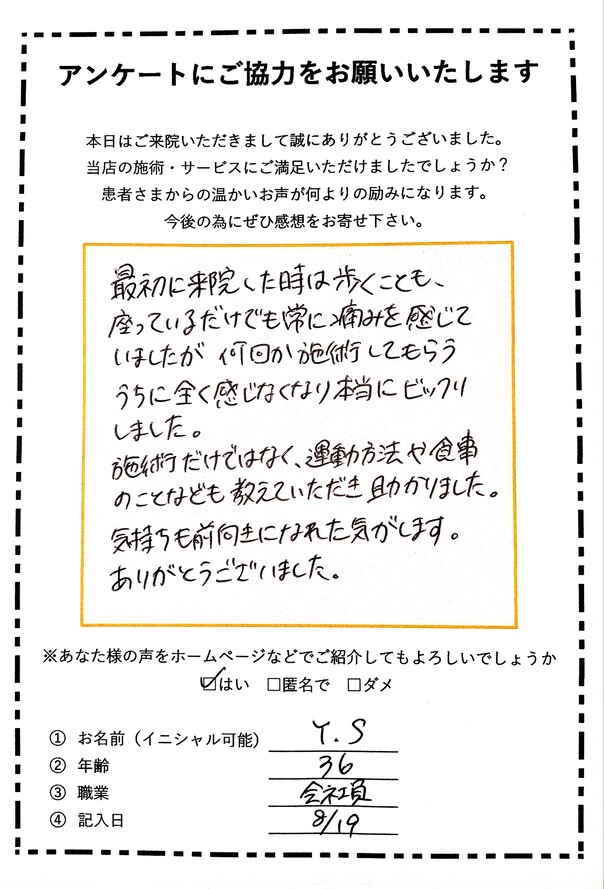 アンケートにご協力をお願いいたします
本日はご来院いただきまして誠にありがとうございました。
当店の施術・サービスにご満足いただけましたでしょうか？
患者さまからの温かいお声が何よりの励みになります。
今後の為にぜひ感想をお寄せ下さい。
最初に来院した時は歩くことも、
座っているだけでも常に痛みを感じて
いましたが 何回か施術してもらう
うちに全く感じなくなり本当にビックリ
しました。
施術だけではなく、運動方法や食事
のことなども教えていただき助かりました。
気持ちも前向きになれた気がします。
ありがとうございました。
※あなた様の声をホームページなどでご紹介してもよろしいでしょうか
☑はい □匿名で □ダメ
① お名前（イニシャル可能） Y.S
② 年齢 36
③ 職業 会社員
④ 記入日 8/19